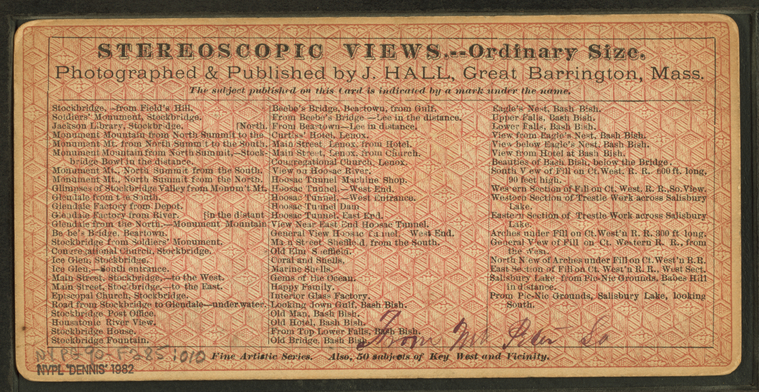 STEREOSCOPIC VIEWS.--Ordinary Size.
Photographed & Published by J. HALL, Great Barrington, Mass.
The subject published on this Card is indicated by a mark under the name.
Stockbridge, from Field's Hill.
Soldiers' Monument, Stockbridge.
Jackson Library, Stockbridge. [North.
Monument Mountain from North Summit to the
Monument Mt. from North Summit to the South.
Monument Mountain from North Summit,—Stock-
bridge Bowl in the distance.
Monument Mt., North Summit from the South.
Monument Mt., North Summit from the North.
Glimpses of Stockbridge Valley from Monum't Mt.
Glendale from the South.
Glendale Factory from Depot.
Glendale Factory from River. [in the distant
Glendale from the North.—Monument Mountain
Beebe's Bridge, Beartown.
Stockbridge from Soldiers' Monument.
Congregational Church, Stockbridge.
Ice Glen, Stockbridge.
Ice Glen,—South entrance.
Main Street, Stockbridge,—to the West.
Main Street, Stockbridge,—to the East.
Episcopal Church, Stockbridge.
Road from Stockbridge to Glendale—under water.
Stockbridge Post Office.
Housatonic River View.
Stockbridge House.
Stockbridge Fountain.
Beebe's Bridge, Beartown, from Gulf.
From Beebe's Bridge—Lee in the distance.
From Beartown—Lee in distance.
Curtiss' Hotel, Lenox.
Main Street, Lenox, from Hotel.
Main Street, Lenox, from Church.
Congregational Church, Lenox.
View on Hoosac River.
Hoosac Tunnel Machine Shop.
Hoosac Tunnel,—West End.
Hoosac Tunnel,—West Entrance.
Hoosac Tunnel Dam.
Hoosac Tunnel, East End.
View Near East End Hoosac Tunnel.
General View Hoosac Tunnel—West End.
Main Street, Sheffield, from the South.
Old Elm, Sheffield.
Coral and Shells.
Marine Shells.
Gems of the Ocean.
Happy Family.
Interior Glass Factory.
Looking down Gulf, Bash Bish.
Old Man, Bash Bish.
Old Hotel, Bash Bish.
From Top Lower Falls, Bash Bish.
Old Bridge, Bash Bish.
Eagle's Nest, Bash Bish.
Upper Falls, Bash Bish.
Lower Falls, Bash Bish.
View from Eagle's Nest, Bash Bish.
View below Eagle's Nest, Bash Bish.
View from Hotel at Bash Bish.
Beauties of Bash Bish, below the Bridge.
South View of Fill on Ct. West. R. R., 600 ft. long,
90 feet high.
Western Section of Fill on Ct. West. R. R., So. View.
Western Section of Trestle Work across Salisbury
Lake.
Eastern Section of Trestle Work across Salisbury
Lake.
Arches under Fill on Ct. West'n R. R., 300 ft long.
General View of Fill on Ct. Western R. R., from
the West.
North View of Arches under Fill on Ct. West'n R.R.
East Section of Fill on Ct. West'n R. R., West Sect.
Salisbury Lake, from Pic-Nic Grounds, Babes Hill
in distance.
From Pic-Nic Grounds, Salisbury Lake, looking
South.
From Mt
Fine Artistic Series. Also, 50 subjects of Key West and Vicinity.
NYPL "DENNIS" 1982